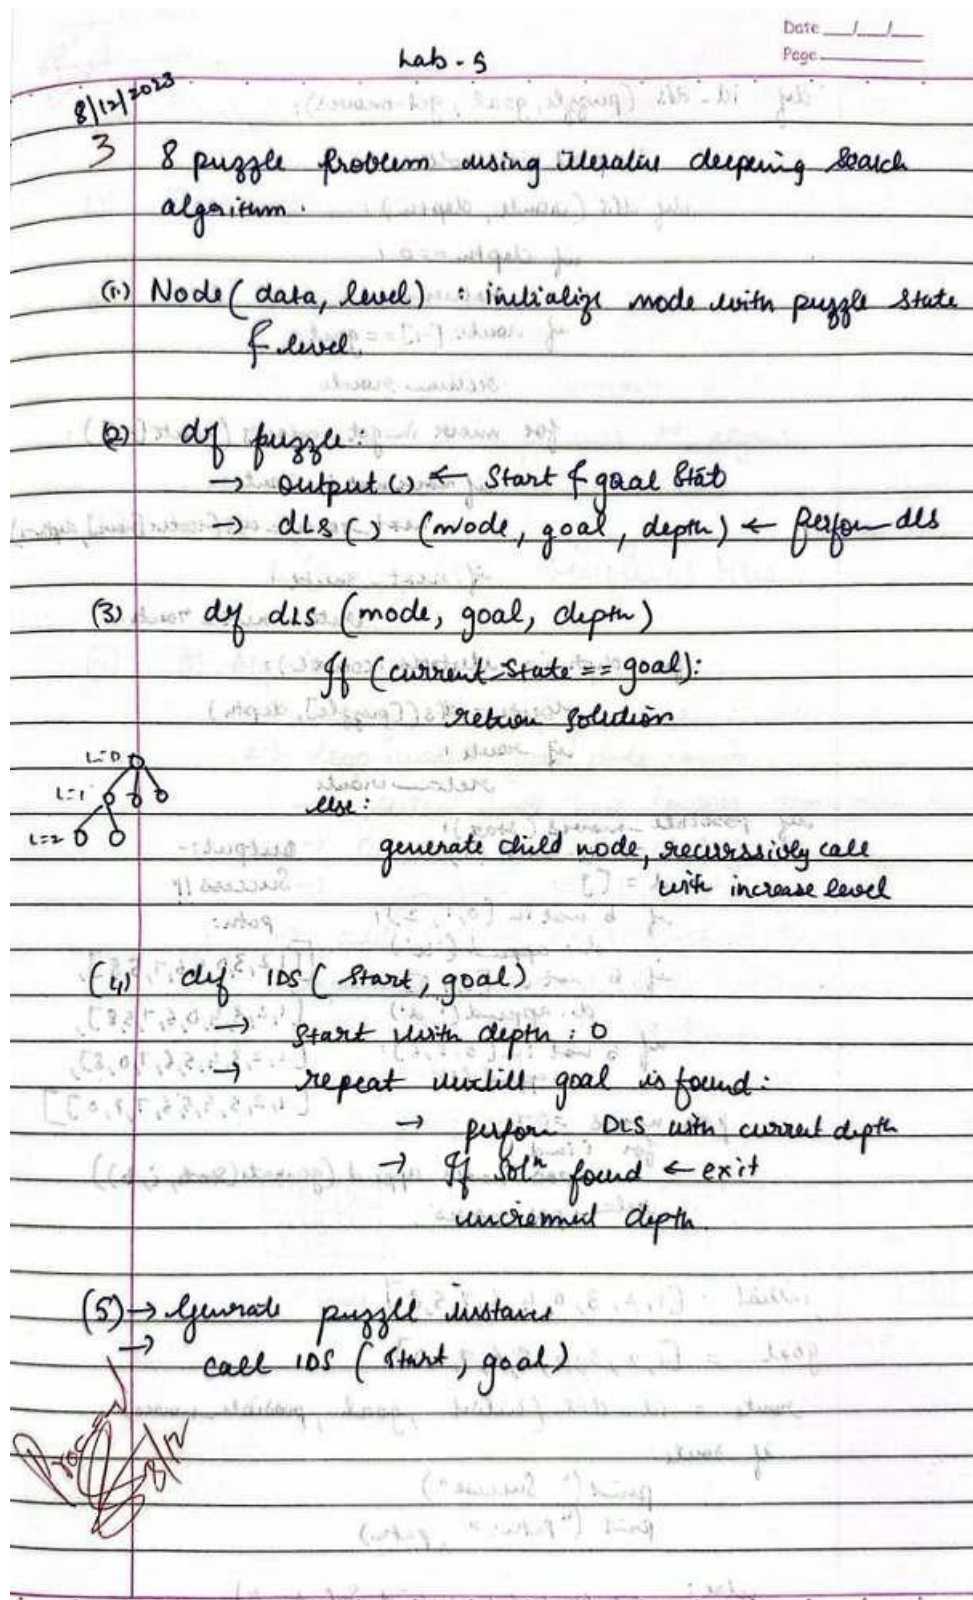 Date __/__/__
Page
Lab - 5
8/12/2023
3 8 puzzle problem using iterative deepening search
algoritum.
(1) Node ( data, level) : initialize node with puzzle state
& level.
(2) def puzzle:
→ output () ← Start & goal Stat
→ dLS () (node, goal, depth) ← perform dls
(3) def dLS (node, goal, depth)
If (current state == goal):
return solution
L=0
L=1
L=2
else:
generate child node, recurssively call
with increase level
(4) def IDS ( Start, goal)
→ Start with depth : 0
→ repeat untill goal is found :
→ perform DLS with current depth
→ If Solⁿ found ← exit
increment depth.
(5) → Generate puzzle instance
→ call IDS ( Start, goal)
8/12